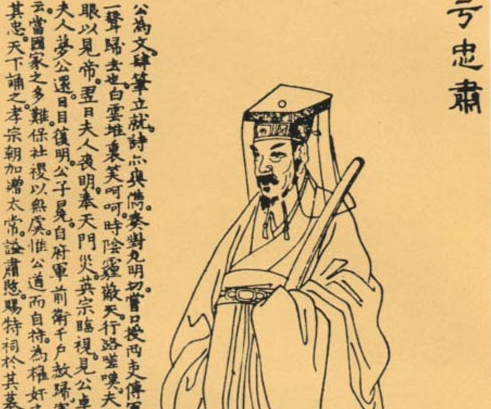 于忠肅
公為文肆筆立就詩亦奏對尤明切嘗口授兩吏傳
一聲歸去也白雲堆裏笑呵呵時陰霾蔽天行路嗟嘆夫
眼以見帝翌日夫人喪明奉天門災英宗臨視見公
夫人夢公還目目復明公子冕自府軍前衛千戶赦歸
云當國家之多難保社稷以無虞惟公道而自持為權奸
其忠天下誦之孝宗朝加贈太常謚肅愍賜特祠於其墓